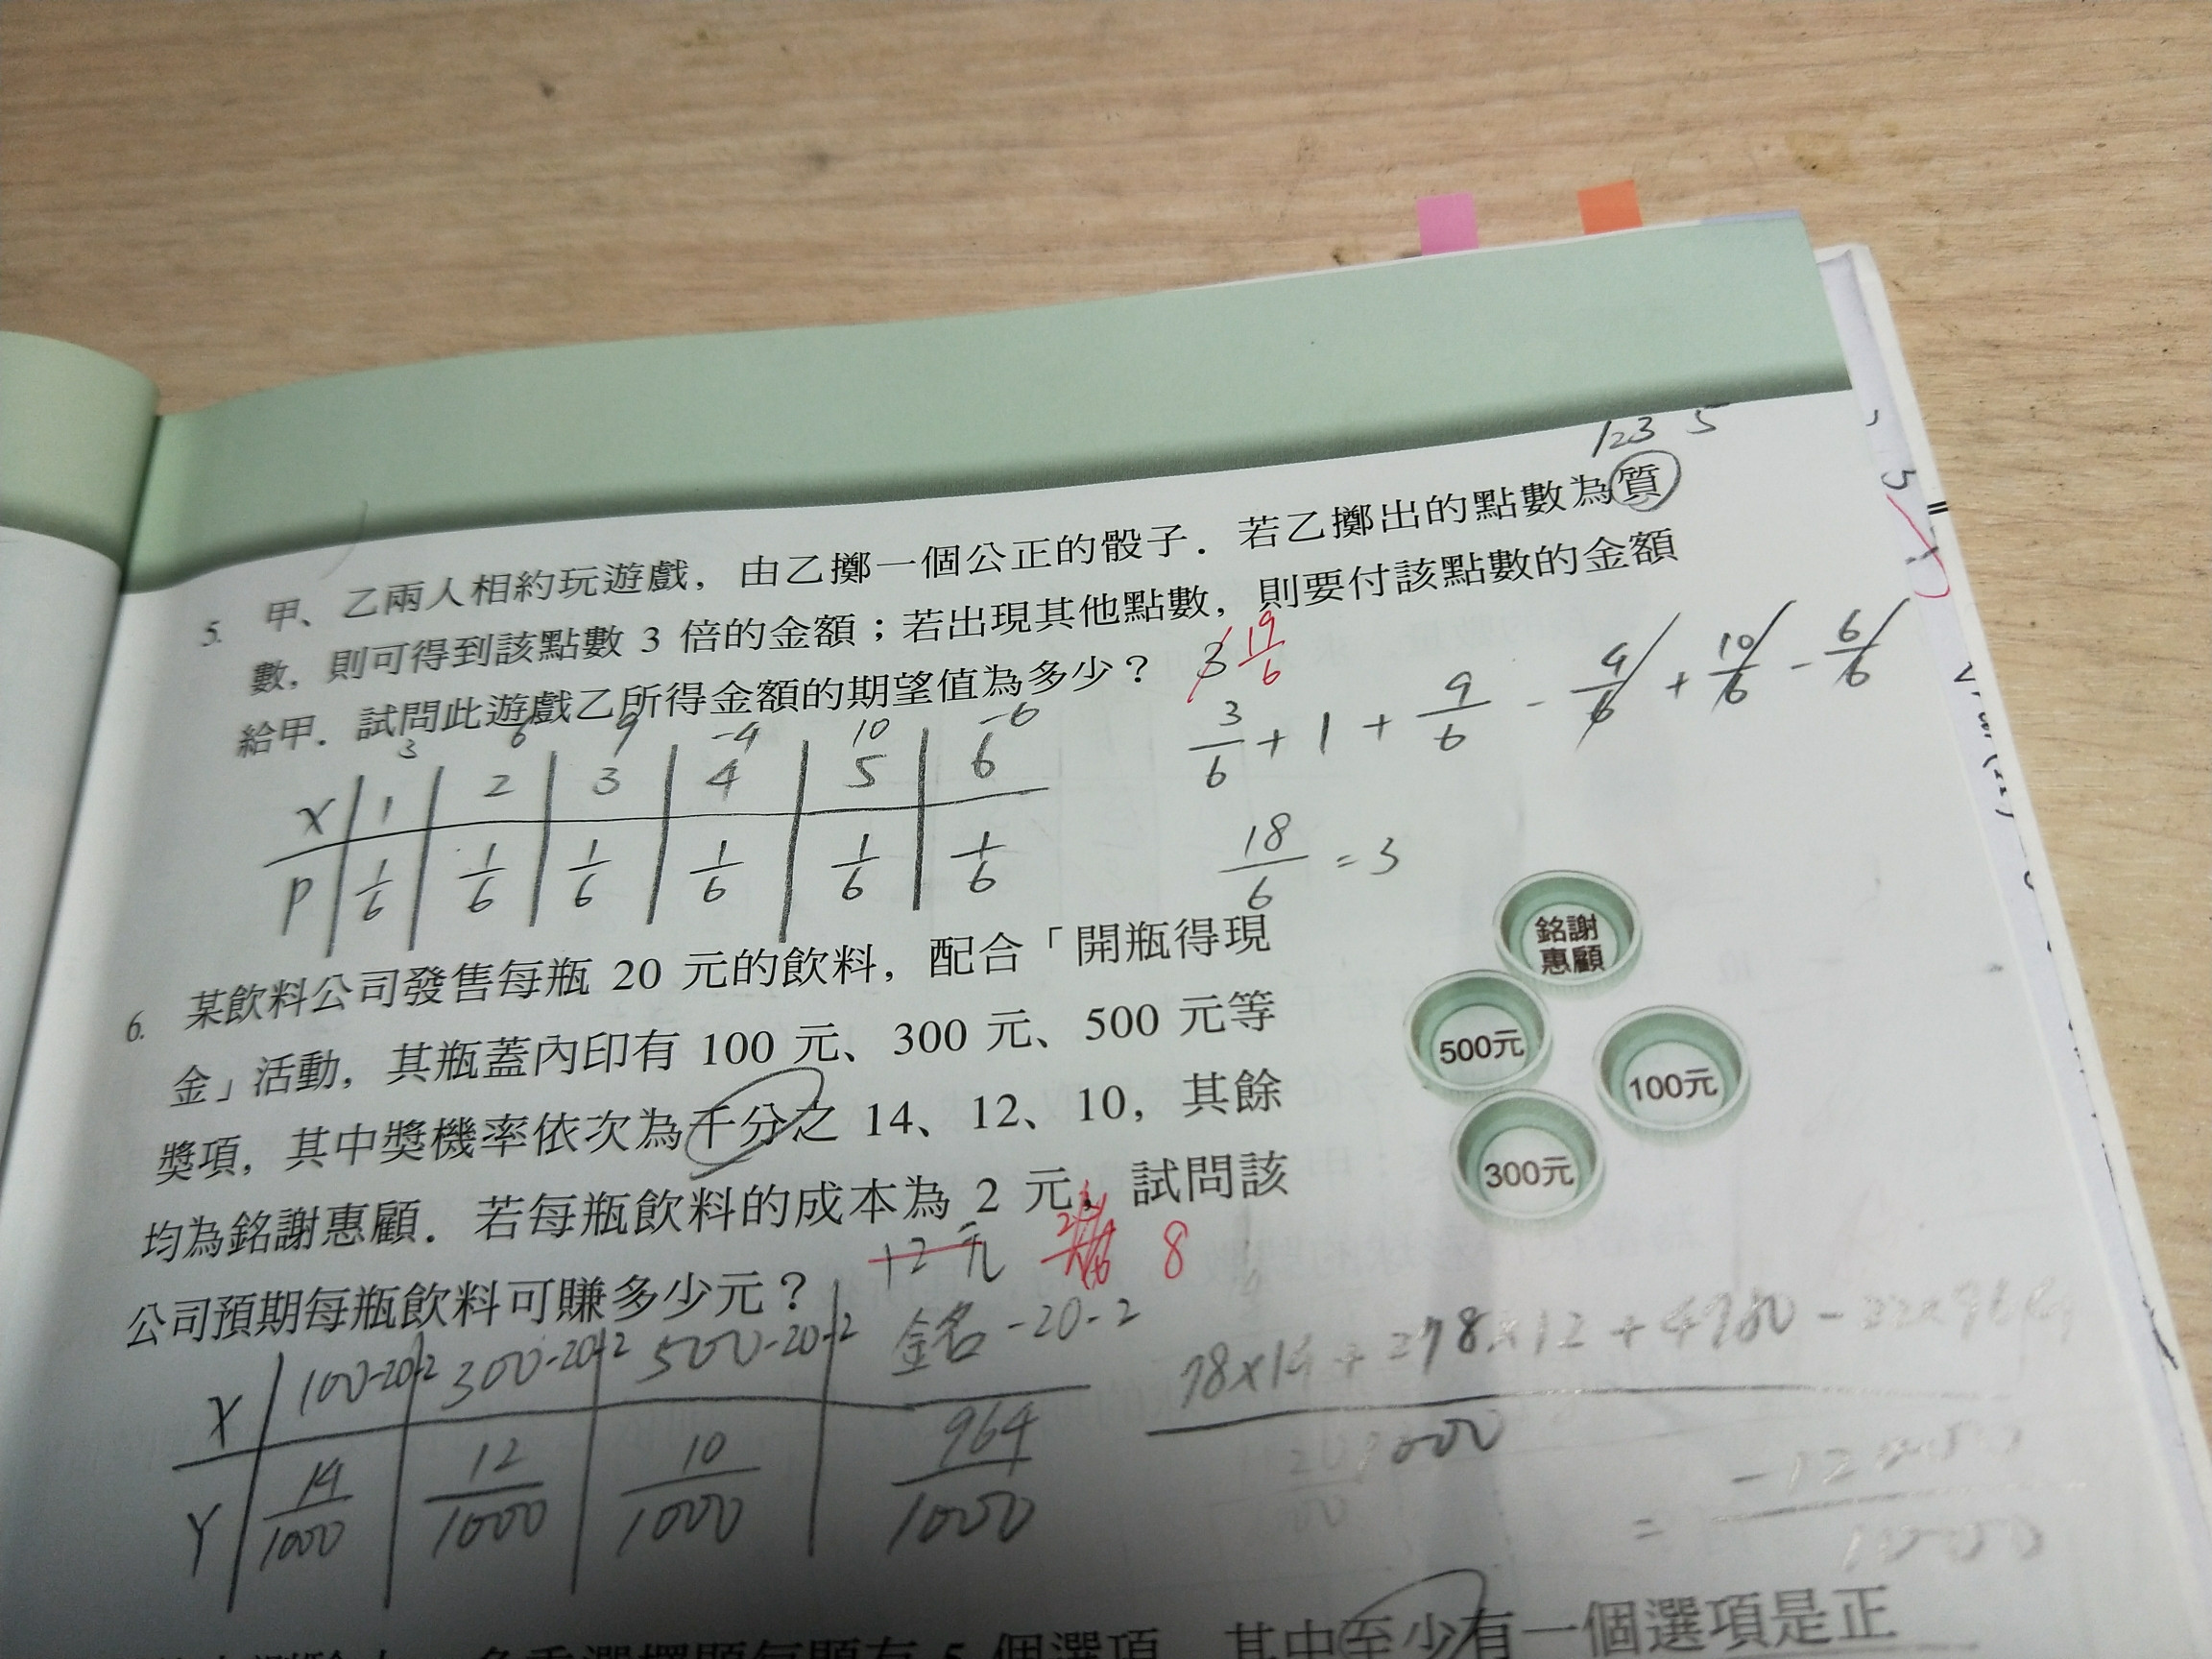 123 5
5. 甲、乙兩人相約玩遊戲，由乙擲一個公正的骰子．若乙擲出的點數為質
數，則可得到該點數 3 倍的金額；若出現其他點數，則要付該點數的金額
給甲．試問此遊戲乙所得金額的期望值為多少？ 3 19/6
3 6 9 -4 10 -6
X 1 2 3 4 5 6
P 1/6 1/6 1/6 1/6 1/6 1/6
3/6 + 1 + 9/6 - 4/6 + 10/6 - 6/6
18/6 = 3
6. 某飲料公司發售每瓶 20 元的飲料，配合「開瓶得現
金」活動，其瓶蓋內印有 100 元、300 元、500 元等
獎項，其中獎機率依次為千分之 14、12、10，其餘
均為銘謝惠顧．若每瓶飲料的成本為 2 元，試問該
公司預期每瓶飲料可賺多少元？
12 元 8
銘謝
惠顧
500元
100元
300元
X 100-20-2 300-20-2 500-20-2 銘-20-2
Y 14/1000 12/1000 10/1000 964/1000
78×14 + 278×12 + 4780 -
1000
5 個選項，其中至少有一個選項是正